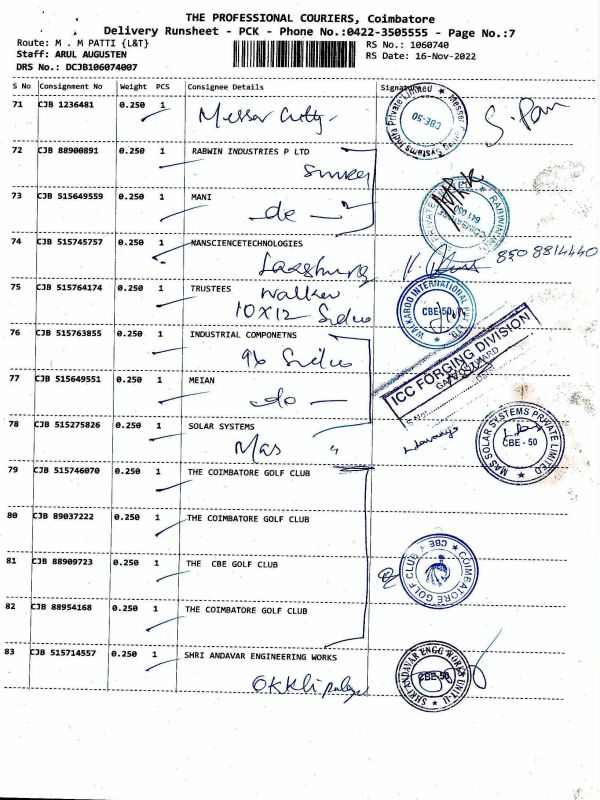 THE PROFESSIONAL COURIERS, Coimbatore
Delivery Runsheet - PCK - Phone No.:0422-3505555 - Page No.:7
Route: M . M PATTI {L&T}
RS No.: 1060740
Staff: ARUL AUGUSTEN
RS Date: 16-Nov-2022
DRS No.: DCJB106074007
S No Consignment No Weight PCS Consignee Details Signature
71 CJB 1236481 0.250 1
Messer Cutty
CBE-50
72 CJB 88900891 0.250 1 RABWIN INDUSTRIES P LTD
73 CJB 515649559 0.250 1 MANI
do
74 CJB 515745757 0.250 1 NANSCIENCETECHNOLOGIES
850 8814440
75 CJB 515764174 0.250 1 TRUSTEES
Walkar
10X12 Sidco
WALKAROO INTERNATIONAL PVT. LTD.
CBE-50
76 CJB 515763855 0.250 1 INDUSTRIAL COMPONETNS
96 Sidco
ICC FORGING DIVISION
77 CJB 515649551 0.250 1 MEIAN
do
78 CJB 515275826 0.250 1 SOLAR SYSTEMS
Mas "
MAS SOLAR SYSTEMS PRIVATE LIMITED
CBE - 50
79 CJB 515746070 0.250 1 THE COIMBATORE GOLF CLUB
80 CJB 89037222 0.250 1 THE COIMBATORE GOLF CLUB
81 CJB 88909723 0.250 1 THE CBE GOLF CLUB
COIMBATORE GOLF CLUB
CBE
82 CJB 88954168 0.250 1 THE COIMBATORE GOLF CLUB
83 CJB 515714557 0.250 1 SHRI ANDAVAR ENGINEERING WORKS
SHRI ANDAVAR ENGG WORKS UNIT-II
CBE-50